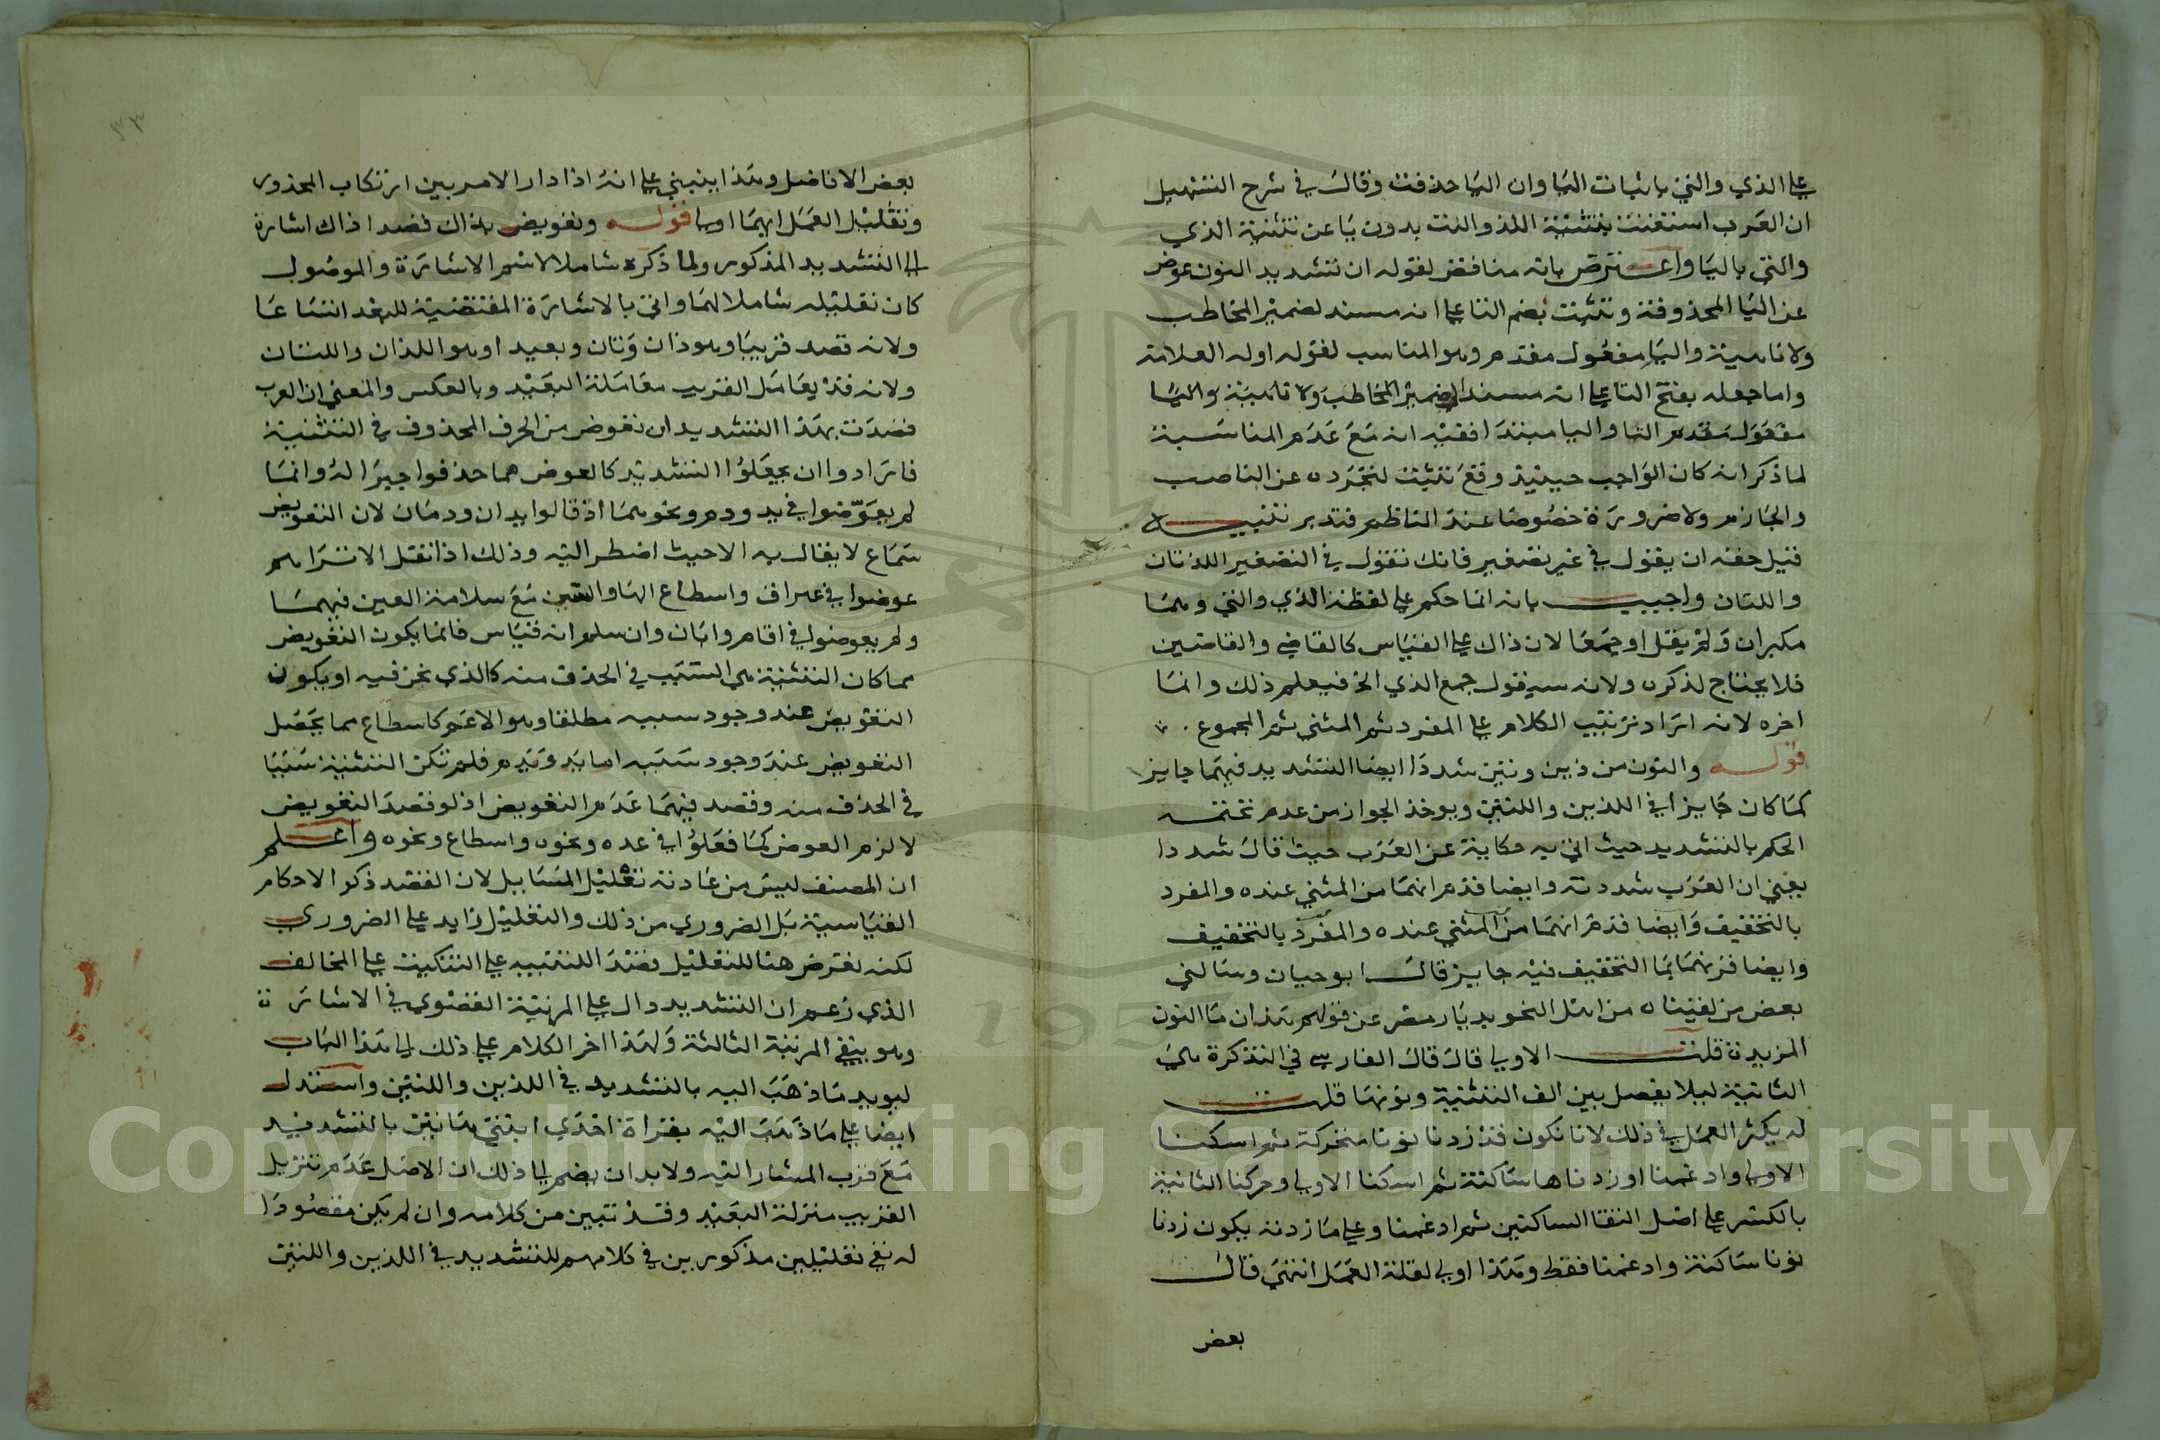 على الذي والتي باثبات اليا وان اليا حذفت وقال في شرح التسهيل
ان العرب استغنت بتثنية اللذ واللت بدون يا عن تثنية الذي
والتي باليا واعترض بانه مناقض لقوله ان تشديد النون عوض
عن اليا المحذوفة وتثبت بضم التا على انه مسند لضمير المخاطب
ولا ناهية واليا مفعول مقدم وهو المناسب لقوله اوله العلامة
واما جعله بفتح التا على انه مسند لضمير المخاطب ولا ناهية واليا
مفعول مقدم التا واليا مبتدا ففيه انه مع عدم المناسبة
لما ذكر انه كان الواجب حينيذ وقع تثبت لتجرده عن الناصب
والجازم ولا ضرورة خصوصا عند الناظم فتدبر تنبيه
قيل حقه ان يقول في غير تصغير فانك تقول في التصغير اللذيان
واللتيان واجيب بانه انما حكم على لفظة الذي والتي وهما
مكبران ولم يقل او جمعا لان ذاك على القياس كالقاضي والقاضين
فلا يحتاج لذكره ولانه سيقول جمع الذي الخ فيعلم ذلك وانما
اخره لانه اراد ترتيب الكلام على المفرد ثم المثني ثم المجموع .
قوله والنون من ذين وتين شددا ايضا التشديد فيهما جايز
كما كان جايزا في اللذين واللتين ويوخذ الجواز من عدم تحتمه
الحكم بالتشديد حيث اتي به حكاية عن العرب حيث قال شددا
يعني ان العرب شددته وايضا قدم انهما من المثني عنده والمفرد
بالتخفيف وايضا قدم انهما من المثني عنده والمفرد بالتخفيف
وايضا قرنهما بما التخفيف فيه جايز قال ابو حيان وسالني
بعض من لقيناه من اهل النحو بديار مصر عن قولهم هذان ما النون
المزيدة قلت الاولي قال قال الفارسي في التذكرة هي
الثانية ليلا يفصل بين الف التثنية ونونها قلت
له يكثر العمل في ذلك لانا نكون قد زدنا نونا متحركة ثم اسكنا
الاولي وادغمنا او زدناها ساكنة ثم اسكنا الاولي وحركنا الثانية
بالكسر على اصل التقا الساكنين ثم ادغمنا وعلى ما زدته يكون زدنا
نونا ساكنة وادغمنا فقط وهذا اولي لقلة العمل انتهي قال
بعض
٣٣
بعض الافاضل وهذا ينبني على انه اذا دار الامر بين ارتكاب المحذور
وتقليل العمل ايهما اولى قوله وتعويض بذاك قصدا ذاك اشارة
الى التشديد المذكور ولما ذكره شاملا لاسم الاشارة والموصول
كان تعليله شاملا لهما واتي بالاشارة المقتضية للبعد اتساعا
ولانه قصد قريبا وهو ذان وتان وبعيد ا وهو اللذان واللتان
ولانه قد يعامل القريب معاملة البعيد وبالعكس والمعني ان العرب
قصدت بهذا التشديد ان تعوض من الحرف المحذوف في التثنية
فارادوا ان يجعلوا التشديد كالعوض مما حذفوا جبرا له وانما
لم يعوضوا في يد ودم ونحوهما اذ قالوا يدان ودمان لان التعويض
سماع لا يقال به الا حيث اضطر اليه وذلك اذا نقل الا تراهم
عوضوا في اهراق واسطاع الها والسين مع سلامة العين فيهما
ولم يعوضوا في اقام وابان وان سلم انه قياس فانما يكون التعويض
مما كان التثنية هي السبب في الحذف منه كالذي نحن فيه او يكون
التعويض عند وجود سببه مطلقا وهو الاعم كاسطاع مما يحصل
التعويض عند وجود سببه اما يد ودم فلم تكن التثنية سببا
في الحذف منه وقصد فيهما عدم التعويض اذ لو قصد التعويض
لالزم العوض كما فعلوا في عده ونحوه واسطاع ونحوه واعلم
ان المصنف ليس من عادته تعليل المسايل لان القصد ذكر الاحكام
القياسية بل الضروري من ذلك والتعليل زايد على الضروري
لكنه تعرض هنا للتعليل قصد التنبيه على التنكيت على المخالف
الذي زعم ان التشديد دال على المرتبة القصوي في الاشارة
وهو ينفي المرتبة الثالثة ولهذا اخر الكلام على ذلك الى هذا الباب
ليويد ما ذهب اليه بالتشديد في اللذين واللتين واستدل
ايضا على ما ذهب اليه بقراة احدي ابنتي هاتين بالتشديد
مع قرب المشار اليه ولا بد ان يضم الى ذلك ان الاصل عدم تنزيل
القريب منزلة البعيد وقد تبين من كلامه وان لم يكن مقصودا
له نفي تعليلين مذكورين في كلامهم للتشديد في اللذين واللتين